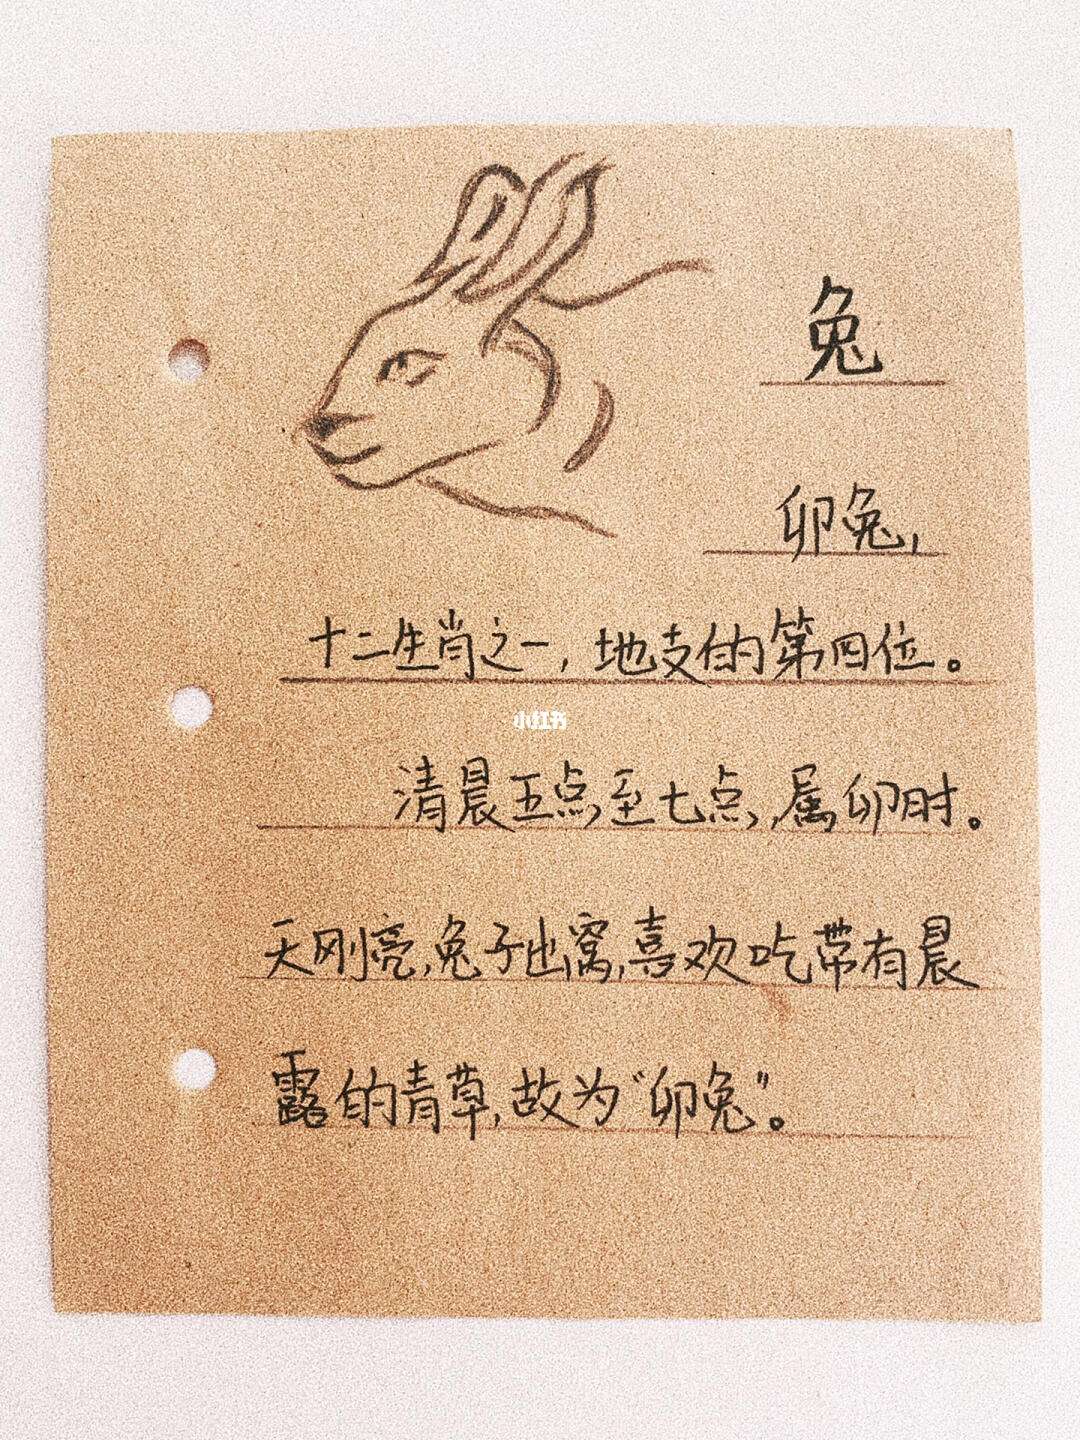 兔
卯兔,
十二生肖之一,地支的第四位。
小红书
清晨五点至七点,属卯时。
天刚亮,兔子出窝,喜欢吃带有晨
露的青草,故为“卯兔”。